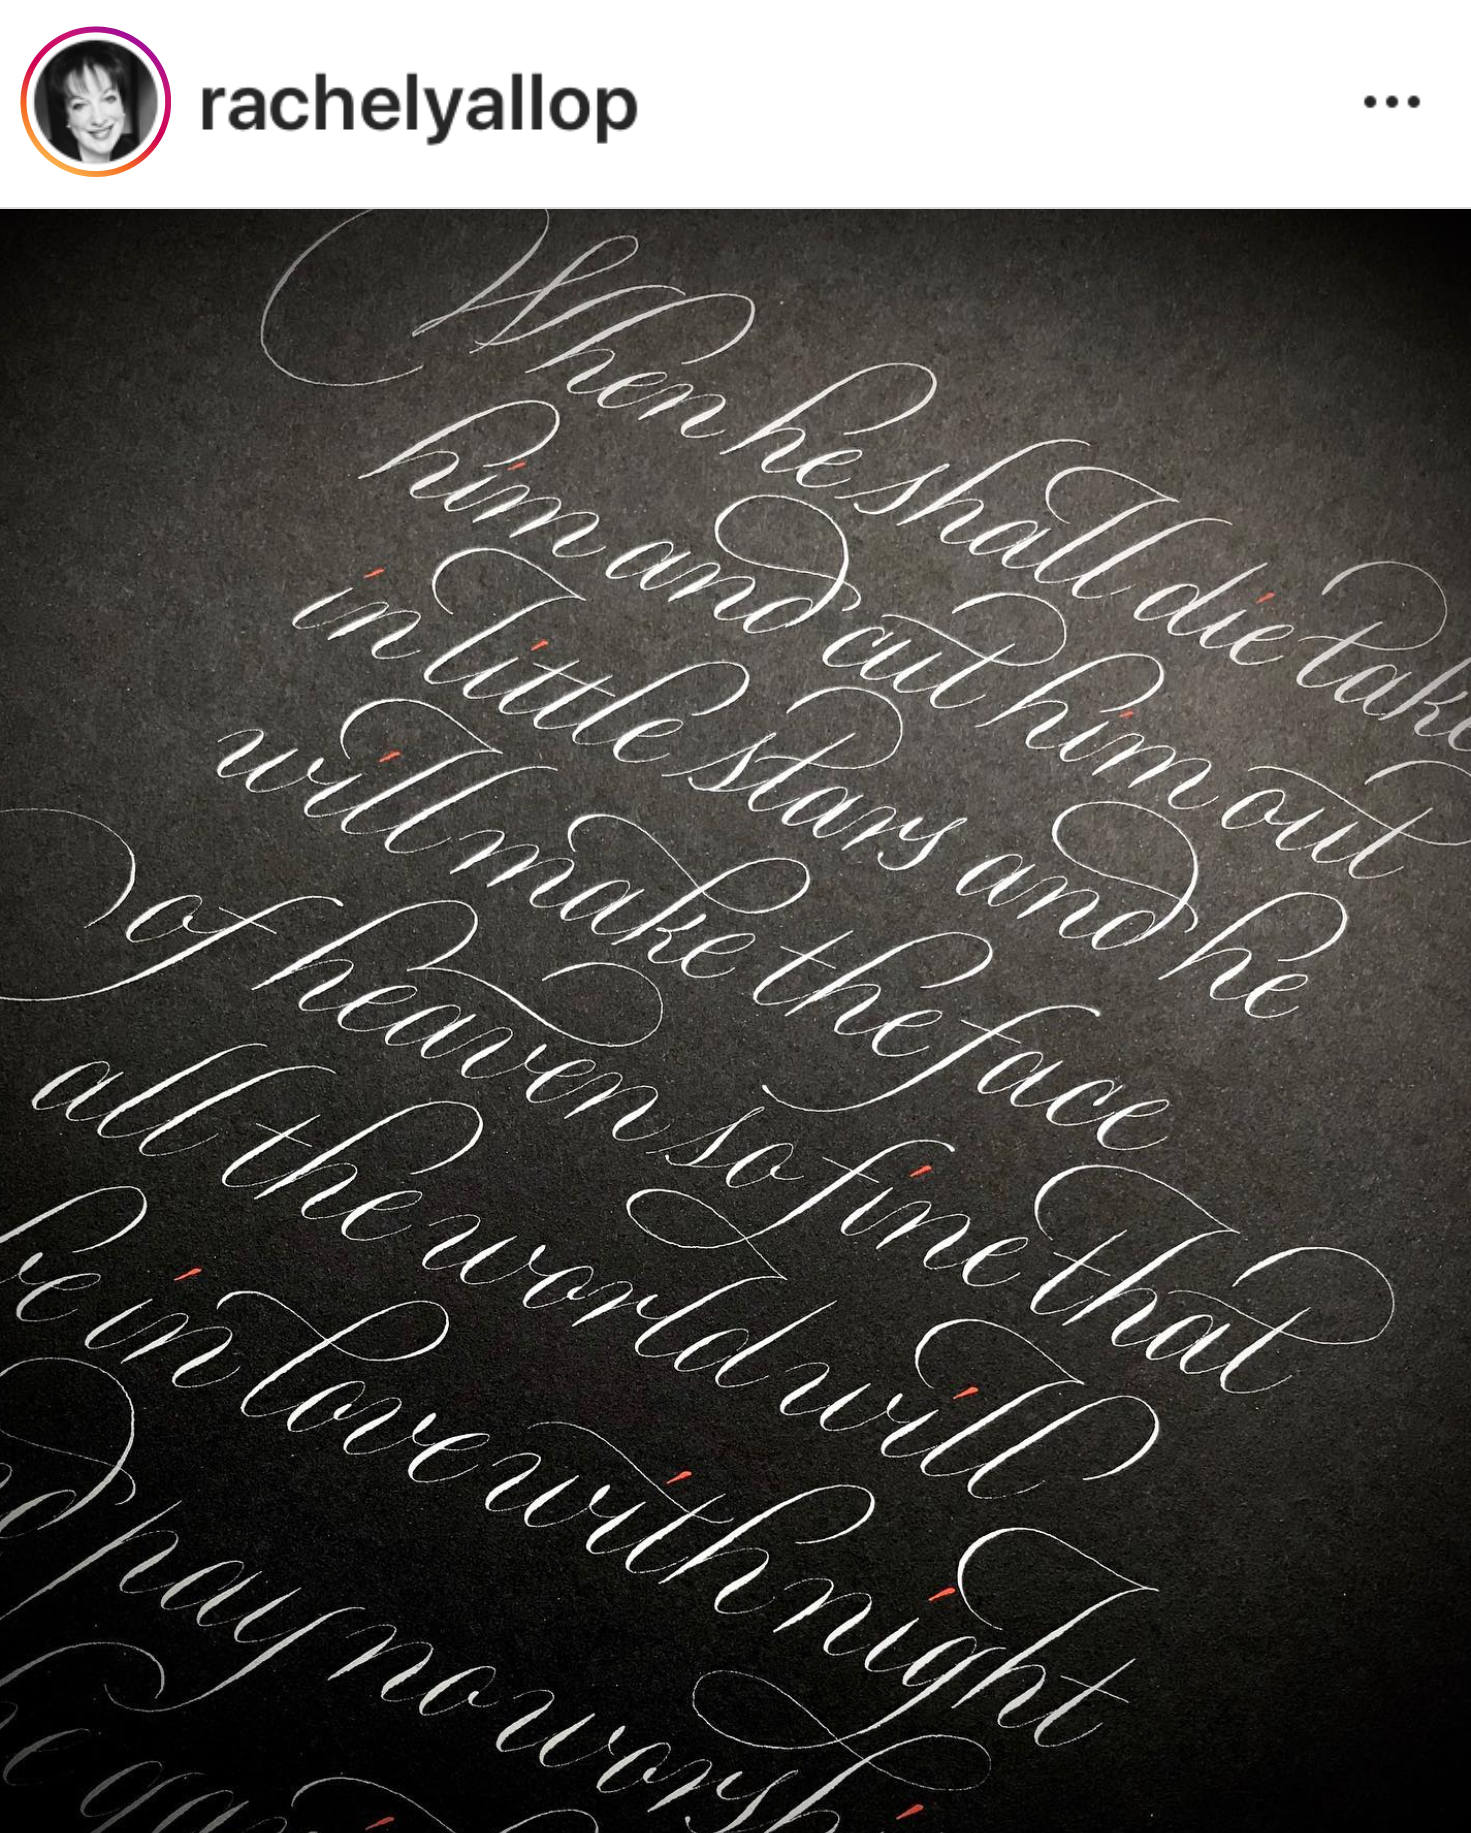 rachelyallop
When he shall die take
him and cut him out
in little stars and he
will make the face
of heaven so fine that
all the world will
be in love with night
pay no worshi